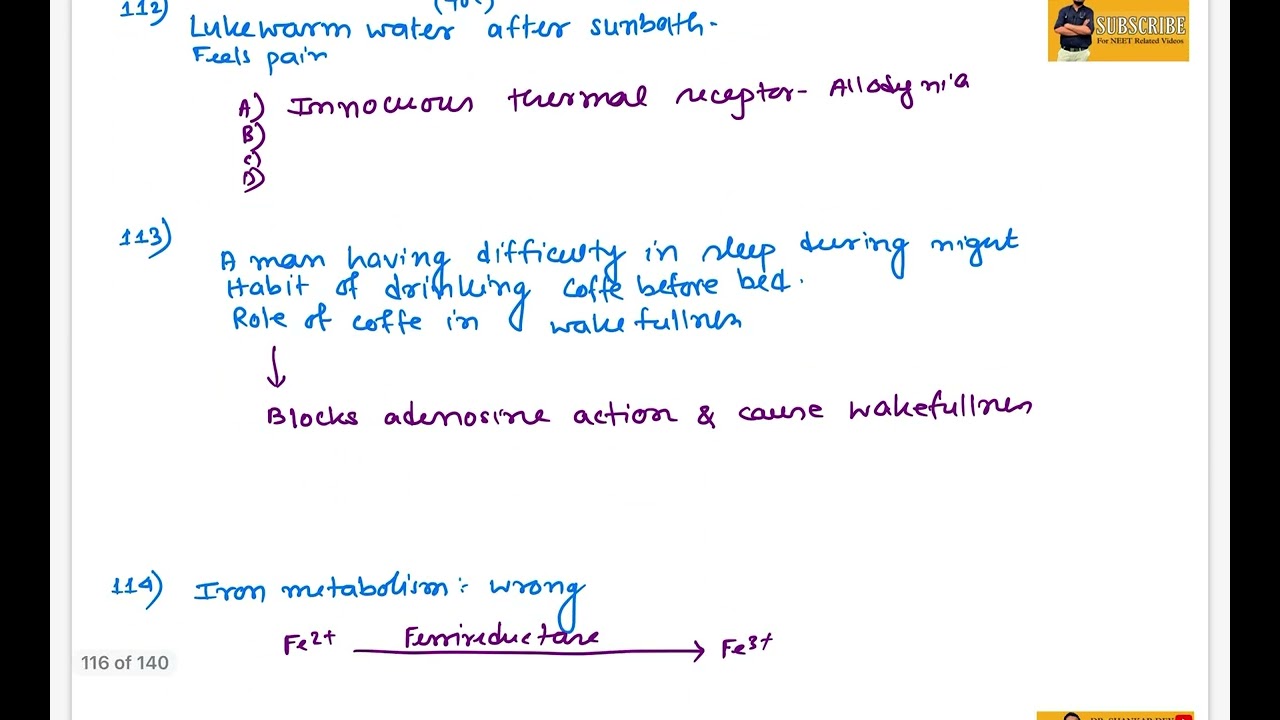 112)
Lukewarm water after sunbath-
Feels pain
A) Innocuous thermal receptor- Allodynia
B)
C)
D)
SUBSCRIBE
For NEET Related Videos
113)
A man having difficulty in sleep during night
Habit of drinking coffe before bed.
Role of coffe in wakefullness
↓
Blocks adenosine action & cause wakefullness
114) Iron metabolism: wrong
Fe2+ Ferrireductase → Fe3+
116 of 140